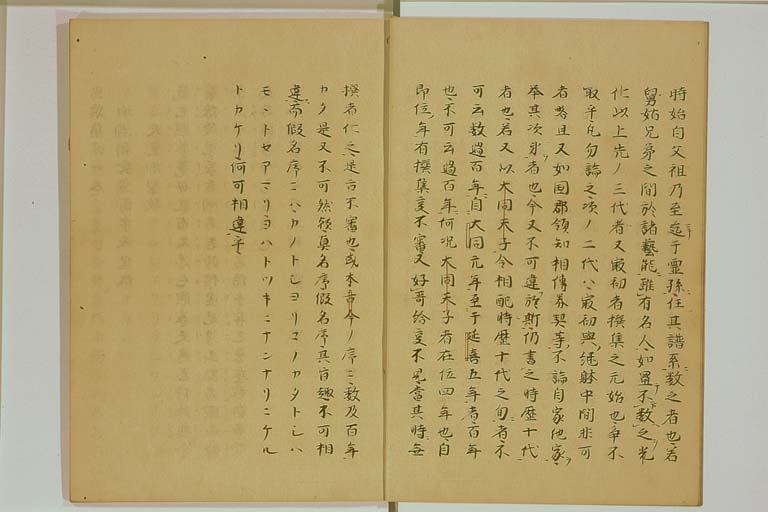 時始自父祖乃至迄于霊孫任其譜系数之者也若
舅姑兄弟之間於諸藝能雖有名人如置不数之光
仁以上先ノ三代者又最初者撰集之元始也争不
取乎凡勿論之次ノ二代ハ最初與縄躰中間非可
者略且又如国郡領知相傳券契等不論自家他家
挙其次身者也今又不可違於斯仍書之時歴十代
者也若又以大同天子令相配時歴十代之旬者不
可云数過百年自大同元年至于延喜五年者百年
也不可云過百年何况大同天子者在位四年也自
即位年有撰集变不審又好哥給变不見當其時無
撰者仁之是言不審也或本古今ノ序ニ数及百年
カク是又不可然彼真名序假名序其旨趣不可相
違而假名序ニハカノトシヨリコノカタトシハ
モヽトセアマリヨハトツキニナンナリニケル
トカケリ何可相違乎